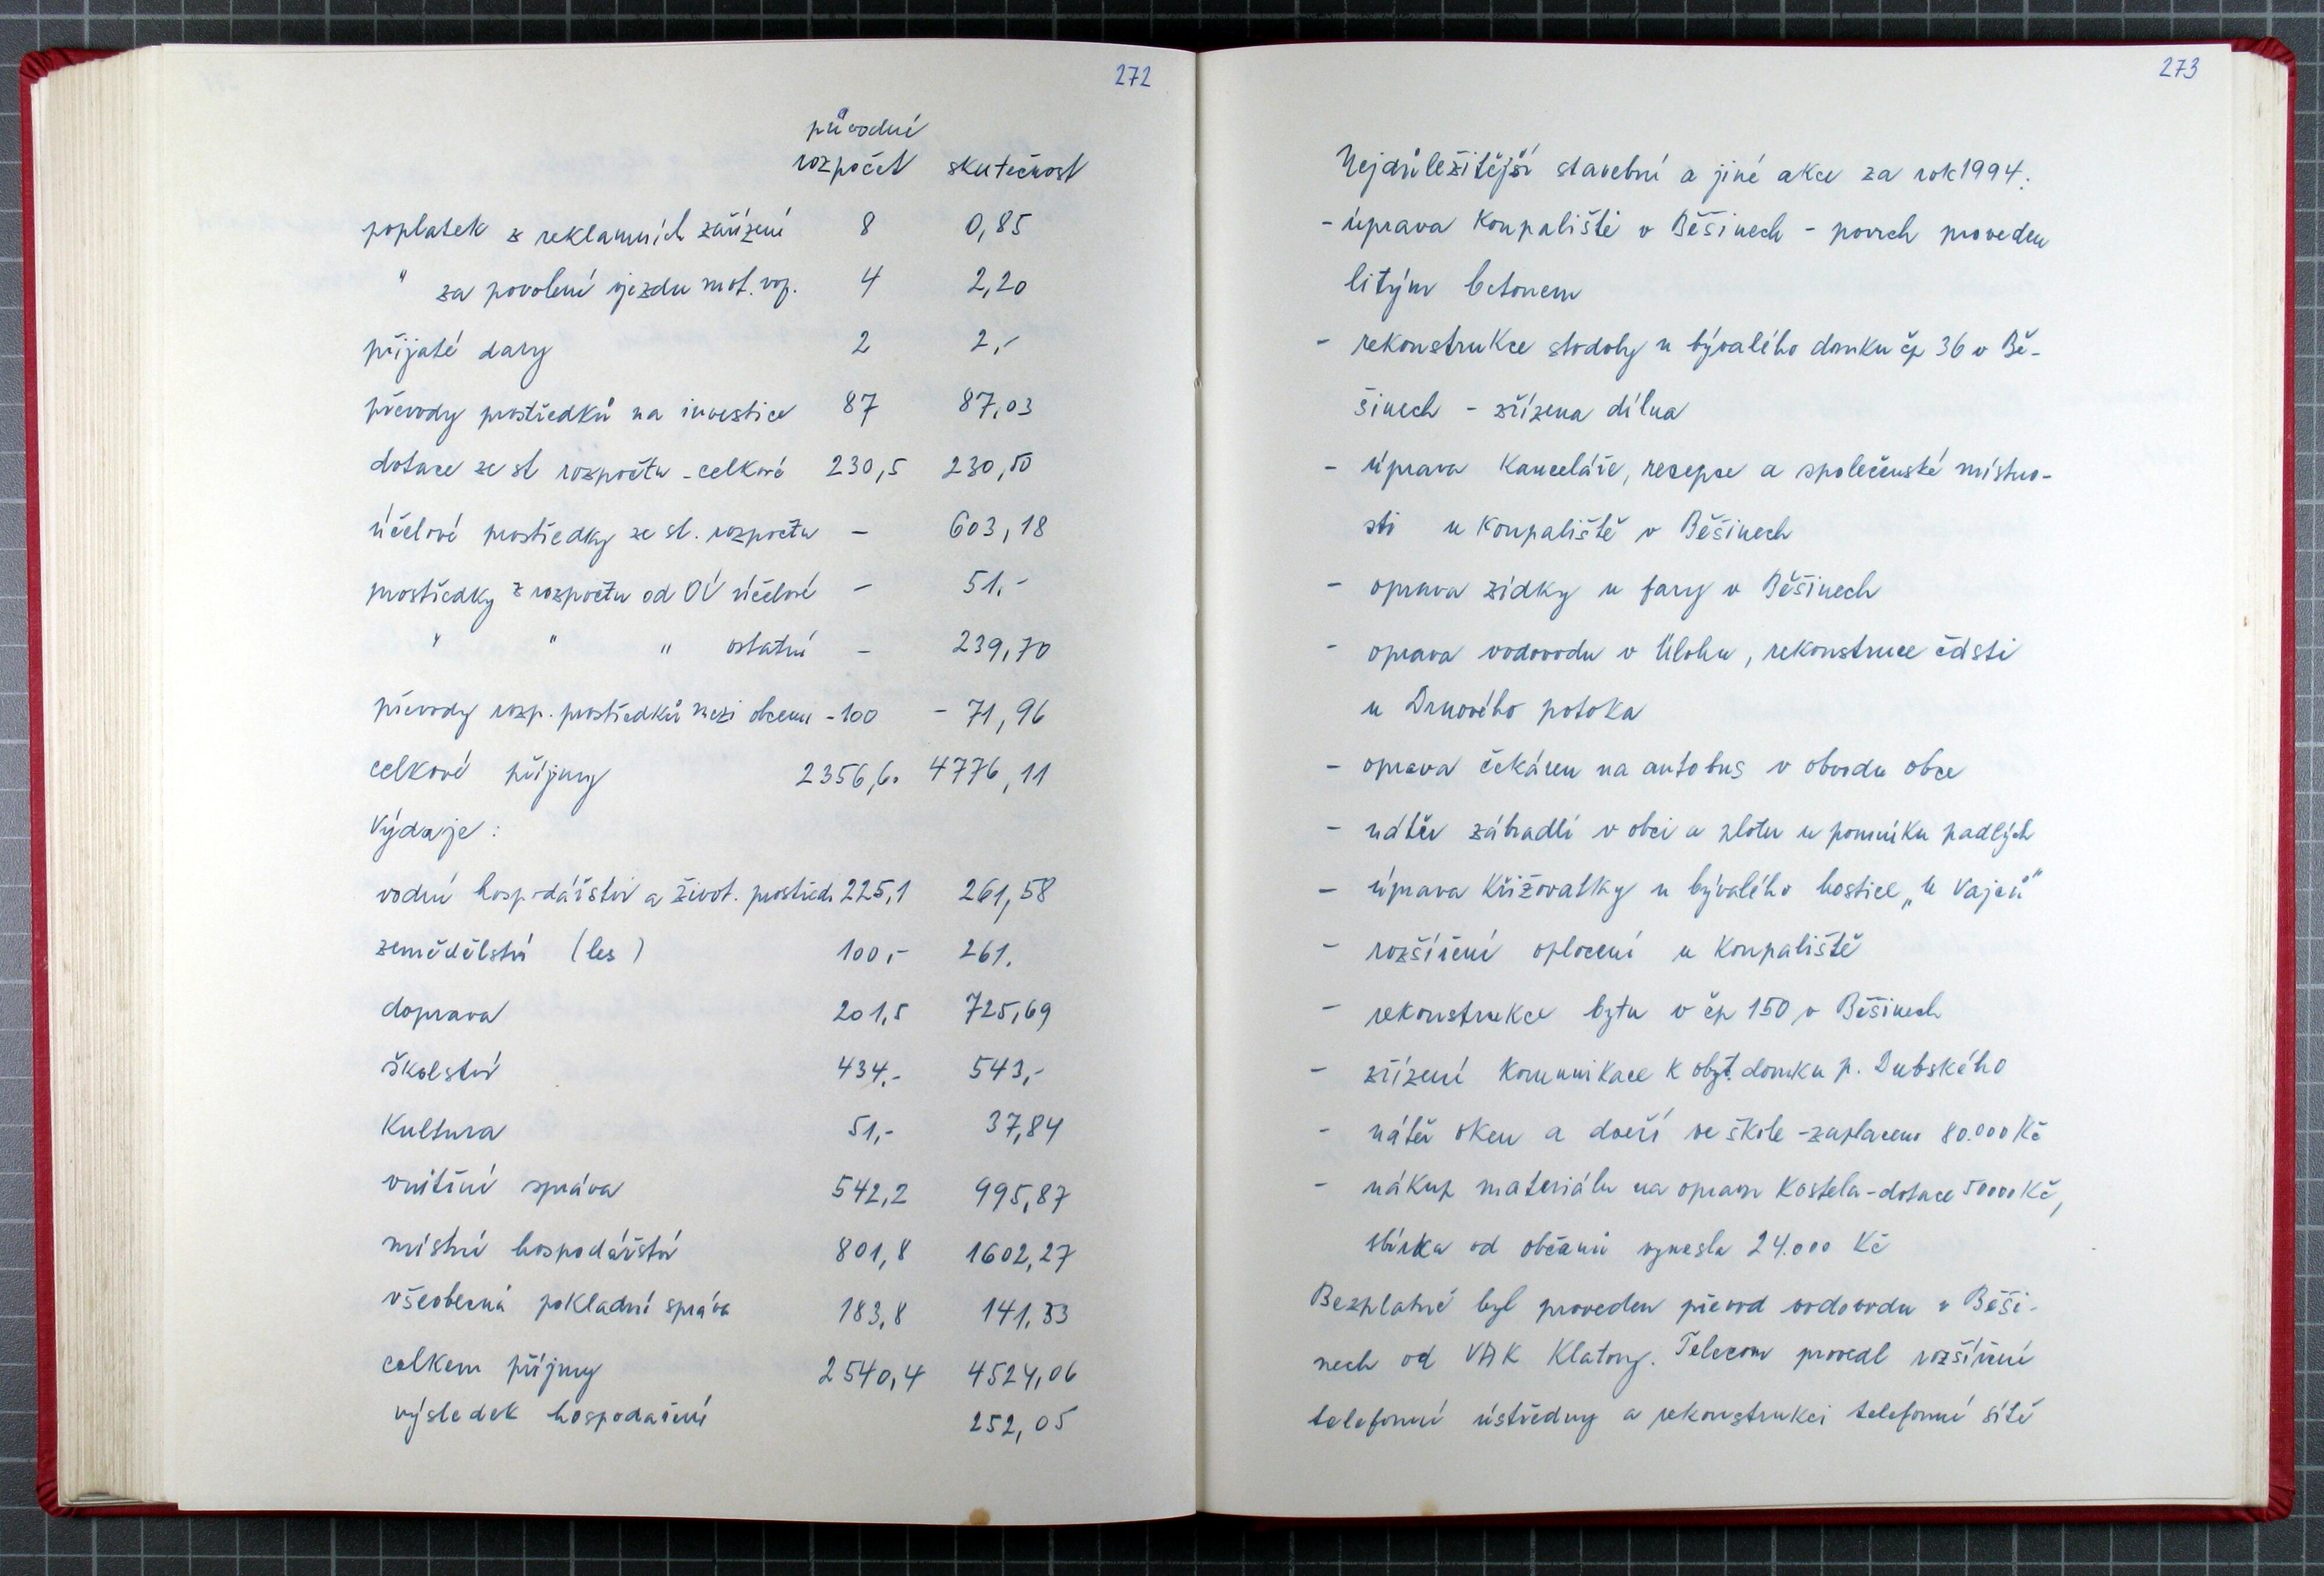 272
původní
rozpočet skutečnost
poplatek z reklamních zařízení 8 0,85
" za povolení vjezdu mot. voz. 4 2,20
přijaté dary 2 2,-
převody prostředků na investice 87 87,03
dotace ze st rozpočtu - celkové 230,5 230,50
účelové prostředky ze st. rozpočtu - 603,18
prostředky z rozpočtu od OÚ účelové - 51.-
" " " ostatní - 239,70
převody rozp. prostředků mezi obcemi -100 - 71,96
celkové příjmy 2356,60 4776,11
Výdaje:
vodní hospodářství a život. prostřed. 225,1 261,58
zemědělství (les) 100,- 261.
doprava 201,5 725,69
školství 434,- 543,-
Kultura 51,- 37,84
vnitřní správa 542,2 995,87
místní hospodářství 801,8 1602,27
všeobecná pokladní správa 183,8 141,53
celkem příjmy 2540,4 4524,06
výsledek hospodaření 252,05
273
Nejdůležitější stavební a jiné akce za rok 1994:
- úprava koupaliště v Běšinech - povrch proveden
litým betonem
- rekonstrukce stodoly u bývalého domku čp 36 v Bě-
šinech - zřízena dílna
- úprava Kanceláře, recepce a společenské místno-
sti u Koupaliště v Běšinech
- oprava zídky u fary v Běšinech
- oprava vodovodu v Úlohu, rekonstruce části
u Drnového potoka
- oprava čekáren na autobus v obvodu obce
- nátěr zábradlí v obci a plotu u pomníku padlých
- úprava Křižovatky u bývalého hostice „U Vajsů"
- rozšíření oplocení u Koupaliště
- rekonstrukce bytu v čp 150 v Běšinech
- zřízení Komunikace k obyt. domku p. Dubského
- nátěr oken a dveří ve škole - zaplaceno 80.000 Kč
- nákup materiálu na opravu Kostela - dotace 50000 Kč,
sbírka od občanů vynesla 24.000 Kč
Bezplatně byl proveden převod vodovodu v Běši-
nech od VAK Klatovy. Telecom provedl rozšíření
telefonní ústředny a rekonstrukci telefonní sítě